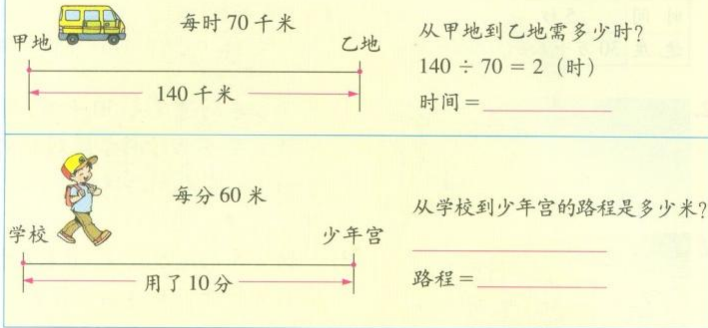 每时70千米
甲地
乙地
140千米
从甲地到乙地需多少时?
140 ÷ 70 = 2 (时)
时间 =
每分60米
学校
少年宫
用了10分
从学校到少年宫的路程是多少米?
路程 =